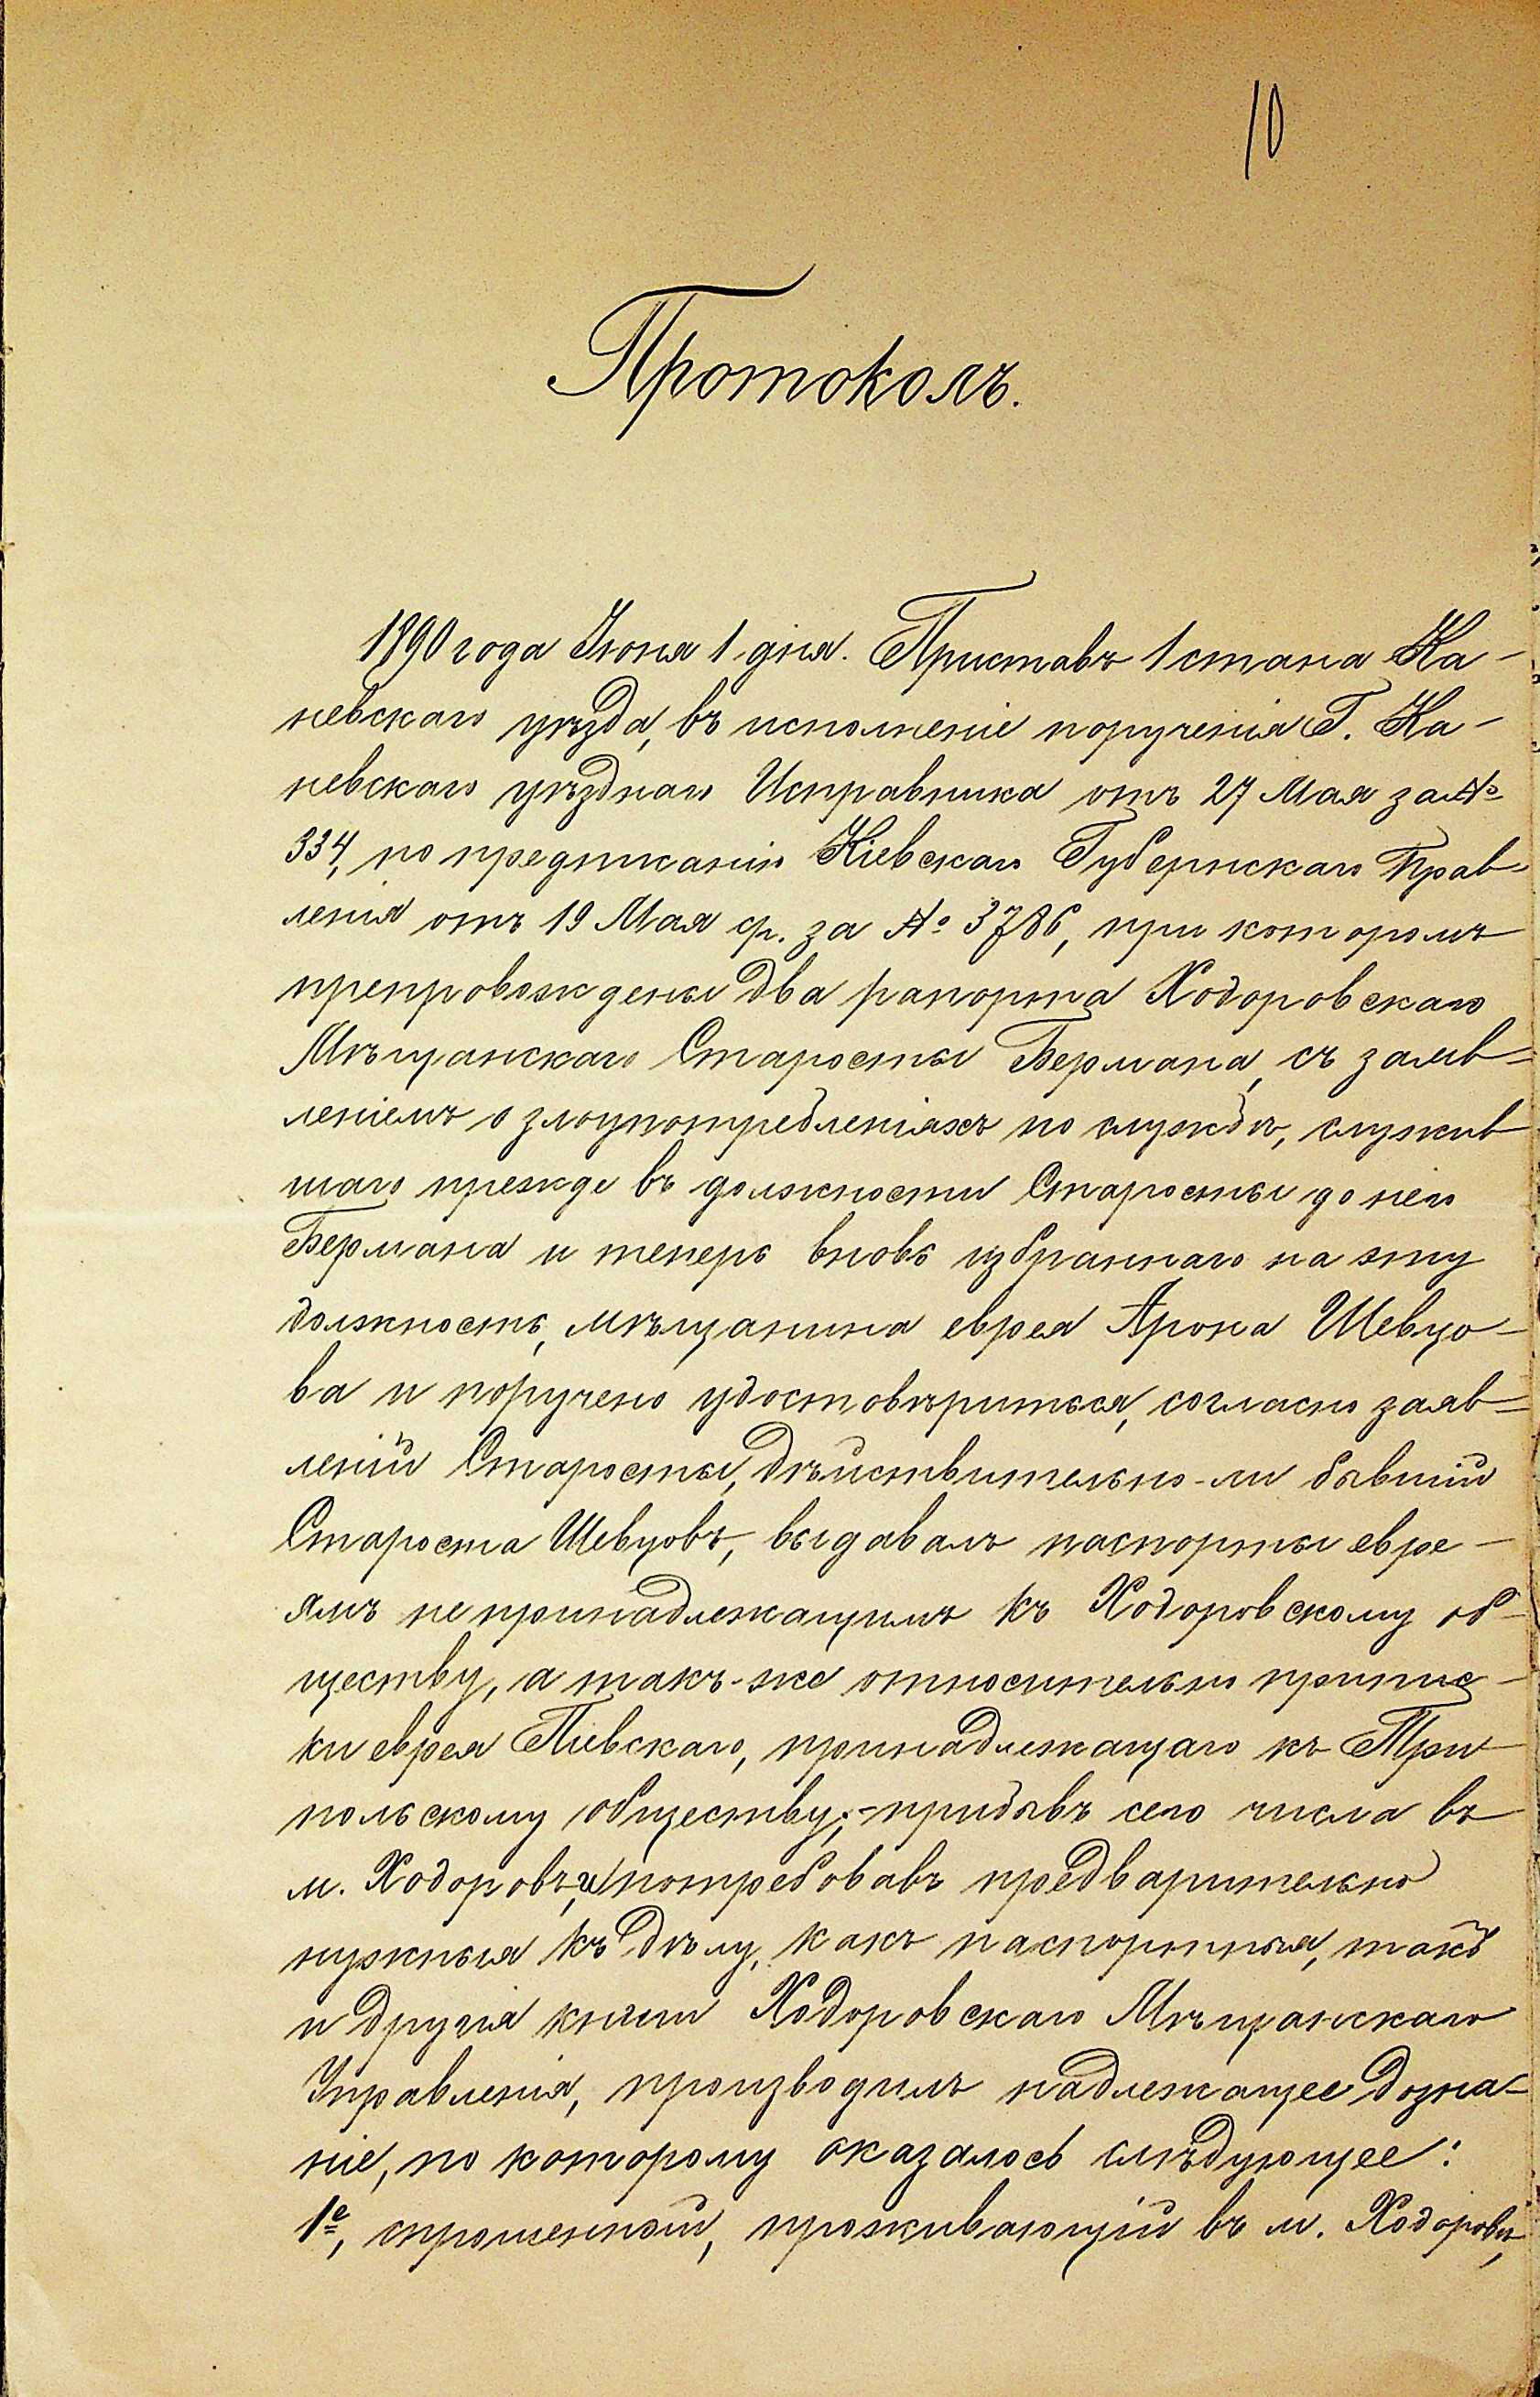 10
Протоколъ.
1890 года Іюня 1 дня. Приставъ 1 стана Ка-
невскаго уѣзда, въ исполненіе порученія Г. Ка-
невскаго уѣзднаго Исправника отъ 27 Мая за №
334, по предписанію Кіевскаго Губернскаго Прав-
ленія отъ 19 Мая ср. за № 3786, при которомъ
препровождены два рапорта Ходоровскаго
Мѣщанскаго Старосты Бермана, съ заяв=
леніемъ о злоупотребленіяхъ по службѣ, служив
шаго прежде въ должности Старосты до него
Бермана и теперь вновь избраннаго на эту
должность, мѣщанина еврея Арона Шевцо-
ва и поручено удостовѣриться, согласно заяв=
леній Старосты, дѣйствительно-ли бывшій
Староста Шевцовъ, выдавалъ паспорты евре-
ямъ не принадлежащимъ къ Ходоровскому об-
ществу, а такъ-же относительно припис-
ки еврея Пивскаго, принадлежащаго къ Три
польскому обществу;-прибывъ сего числа въ
м. Ходоровъ, и потребовавъ предварительно
нужныя къ дѣлу, какъ паспортныя, такъ
и другія книги Ходоровскаго Мѣщанскаго
Управленія, производилъ надлежащее дозна-
ніе, по которому оказалось слѣдующее:
1е, спрошенный, проживающій въ м. Ходоровѣ,